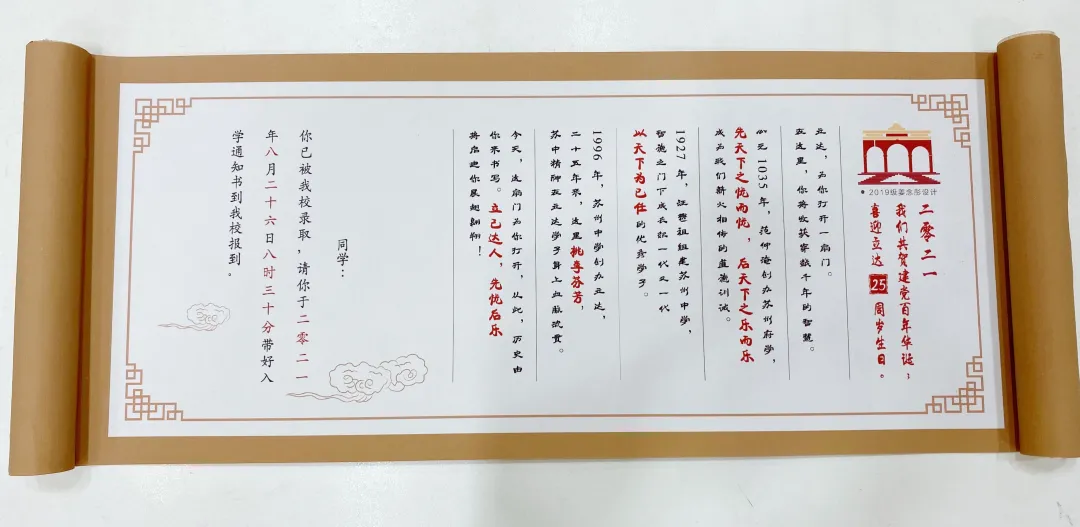 • 2019级姜念彤设计
二零二一
我们共贺建党百年华诞；
喜迎立达 25 周岁生日。
立达，为你打开一扇门。
在这里，你将收获穿越千年的智慧。
公元 1035 年，范仲淹创办苏州府学，
先天下之忧而忧，后天下之乐而乐
成为我们薪火相传的道德训诫。
1927 年，汪懋祖组建苏州中学，
智德之门下成长起一代又一代
以天下为己任的优秀学子。
1996 年，苏州中学创办立达，
二十五年来，这里桃李芬芳，
苏中精神在立达学子身上血脉流贯。
今天，这扇门为你打开，从此，历史由
你来书写。立己达人，先忧后乐
将启迪你展翅翱翔！
同学：
你已被我校录取，请你于二零二一
年八月二十六日八时三十分带好入
学通知书到我校报到。